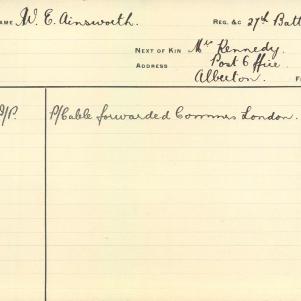 NAME W. E. Ainsworth. REG. &c 27th Batt
NEXT OF KIN Mrs Kennedy.
ADDRESS Post Office.
Alberton. F
/P. P/Cable forwarded Commrs London.